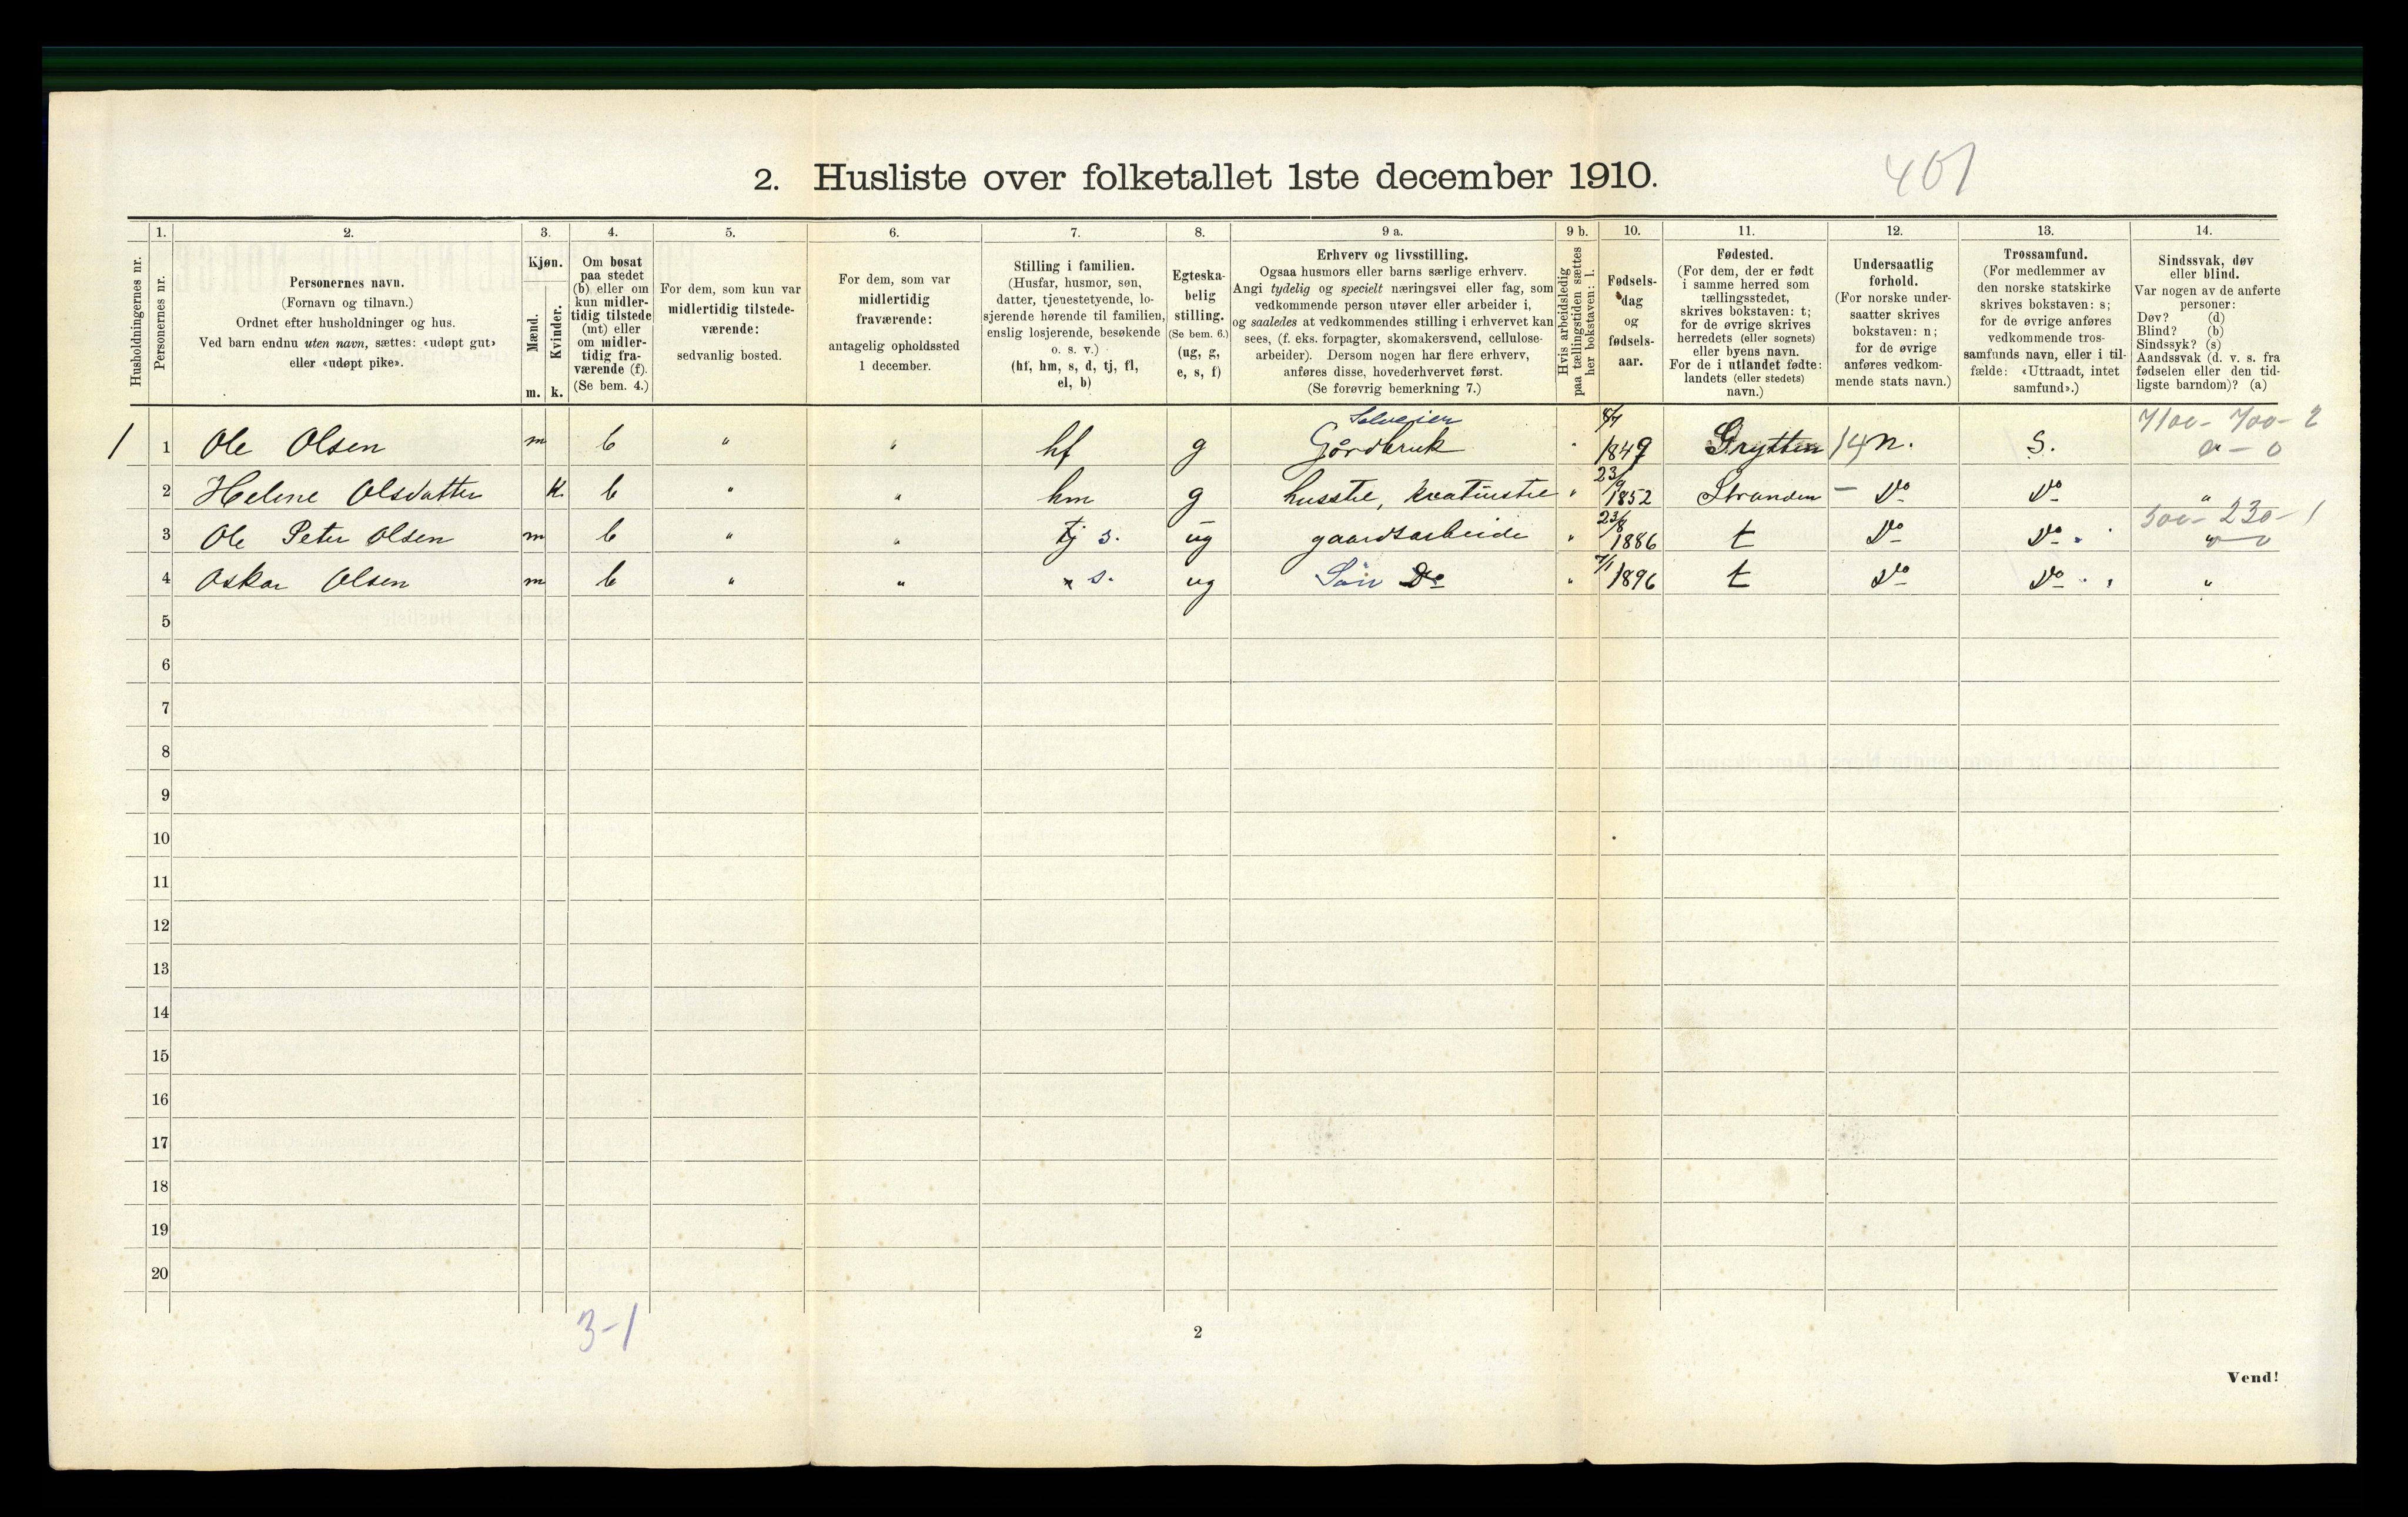 2. Husliste over folketallet 1ste december 1910.
401
Husholdningernes nr.
1.
Personernes nr.
2.
Personernes navn.
(Fornavn og tilnavn.)
Ordnet efter husholdninger og hus.
Ved barn endnu uten navn, sættes: «udøpt gut»
eller «udøpt pike».
3.
Kjøn.
Mænd.
Kvinder.
m. k.
4.
Om bosat
paa stedet
(b) eller om
kun midler-
tidig tilstede
(mt) eller
om midler-
tidig fra-
værende (f).
(Se bem. 4.)
5.
For dem, som kun var
midlertidig tilstede-
værende:
sedvanlig bosted.
6.
For dem, som var
midlertidig
fraværende:
antagelig opholdssted
1 december.
7.
Stilling i familien.
(Husfar, husmor, søn,
datter, tjenestetyende, lo-
sjerende hørende til familien,
enslig losjerende, besøkende
o. s. v.)
(hf, hm, s, d, tj, fl,
el, b)
8.
Egteska-
belig
stilling.
(Se bem. 6.)
(ug, g,
e, s, f)
9 a.
Erhverv og livsstilling.
Ogsaa husmors eller barns særlige erhverv.
Angi tydelig og specielt næringsvei eller fag, som
vedkommende person utøver eller arbeider i,
og saaledes at vedkommendes stilling i erhvervet kan
sees, (f. eks. forpagter, skomakersvend, cellulose-
arbeider). Dersom nogen har flere erhverv,
anføres disse, hovederhvervet først.
(Se forøvrig bemerkning 7.)
9 b.
Hvis arbeidsledig
paa tællingstiden sættes
her bokstaven: l.
10.
Fødsels-
dag
og
fødsels-
aar.
11.
Fødested.
(For dem, der er født
i samme herred som
tællingsstedet,
skrives bokstaven: t;
for de øvrige skrives
herredets (eller sognets)
eller byens navn.
For de i utlandet fødte:
landets (eller stedets)
navn.)
12.
Undersaatlig
forhold.
(For norske under-
saatter skrives
bokstaven: n;
for de øvrige
anføres vedkom-
mende stats navn.)
13.
Trossamfund.
(For medlemmer av
den norske statskirke
skrives bokstaven: s;
for de øvrige anføres
vedkommende tros-
samfunds navn, eller i til-
fælde: «Uttraadt, intet
samfund».)
14.
Sindssvak, døv
eller blind.
Var nogen av de anførte
personer:
Døv? (d)
Blind? (b)
Sindssyk? (s)
Aandssvak (d. v. s. fra
fødselen eller den tid-
ligste barndom)? (a)
Selveier 7100- 700- 2
1 1 Ole Olsen m b " " hf g Gårdbruk 1849 Grytten 14 n. s.
2 Helene Olsdatter k b " " hm g husstel, kreaturstel " 23/9 1852 Stranden - Do Do "
300- 230- 1
3 Ole Peter Olsen m b " " tj s. ug gaardsarbeide " 23/8 1886 t Do Do
4 Oskar Olsen m b " " s. ug Søn Do " 7/1 1896 t Do Do "
5
6
7
8
9
10
11
12
13
14
15
16
17
18
19
20
3-1
2
Vend!